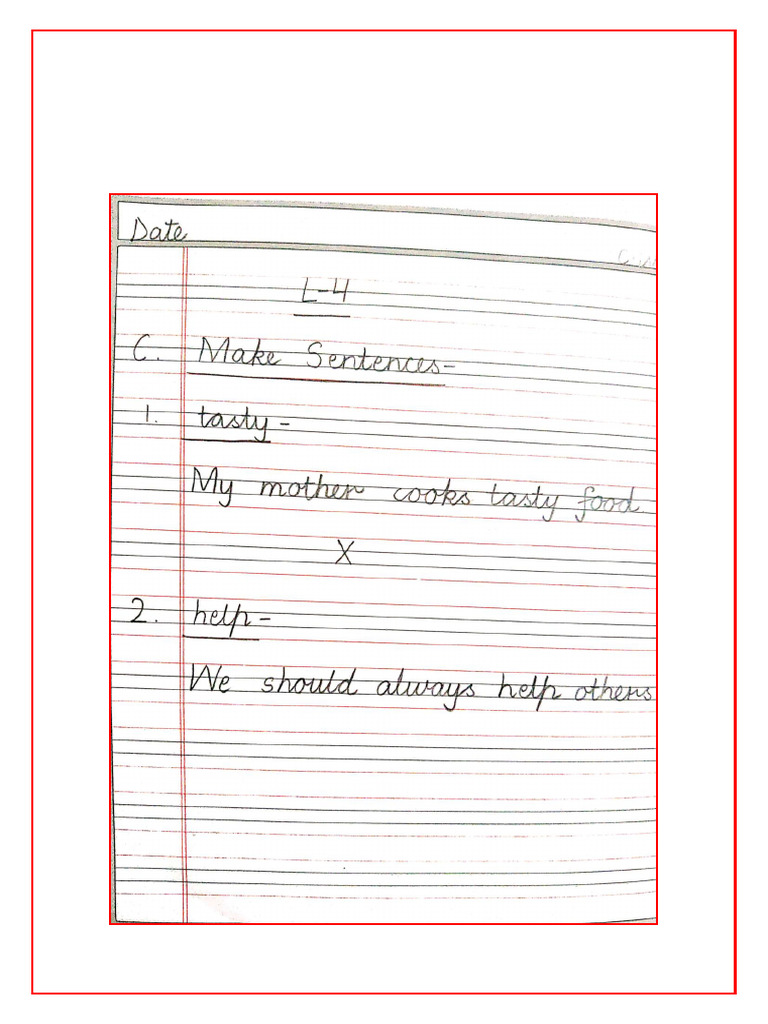 Date
L-4
C. Make Sentences-
1. tasty -
My mother cooks tasty food.
X
2. help -
We should always help others